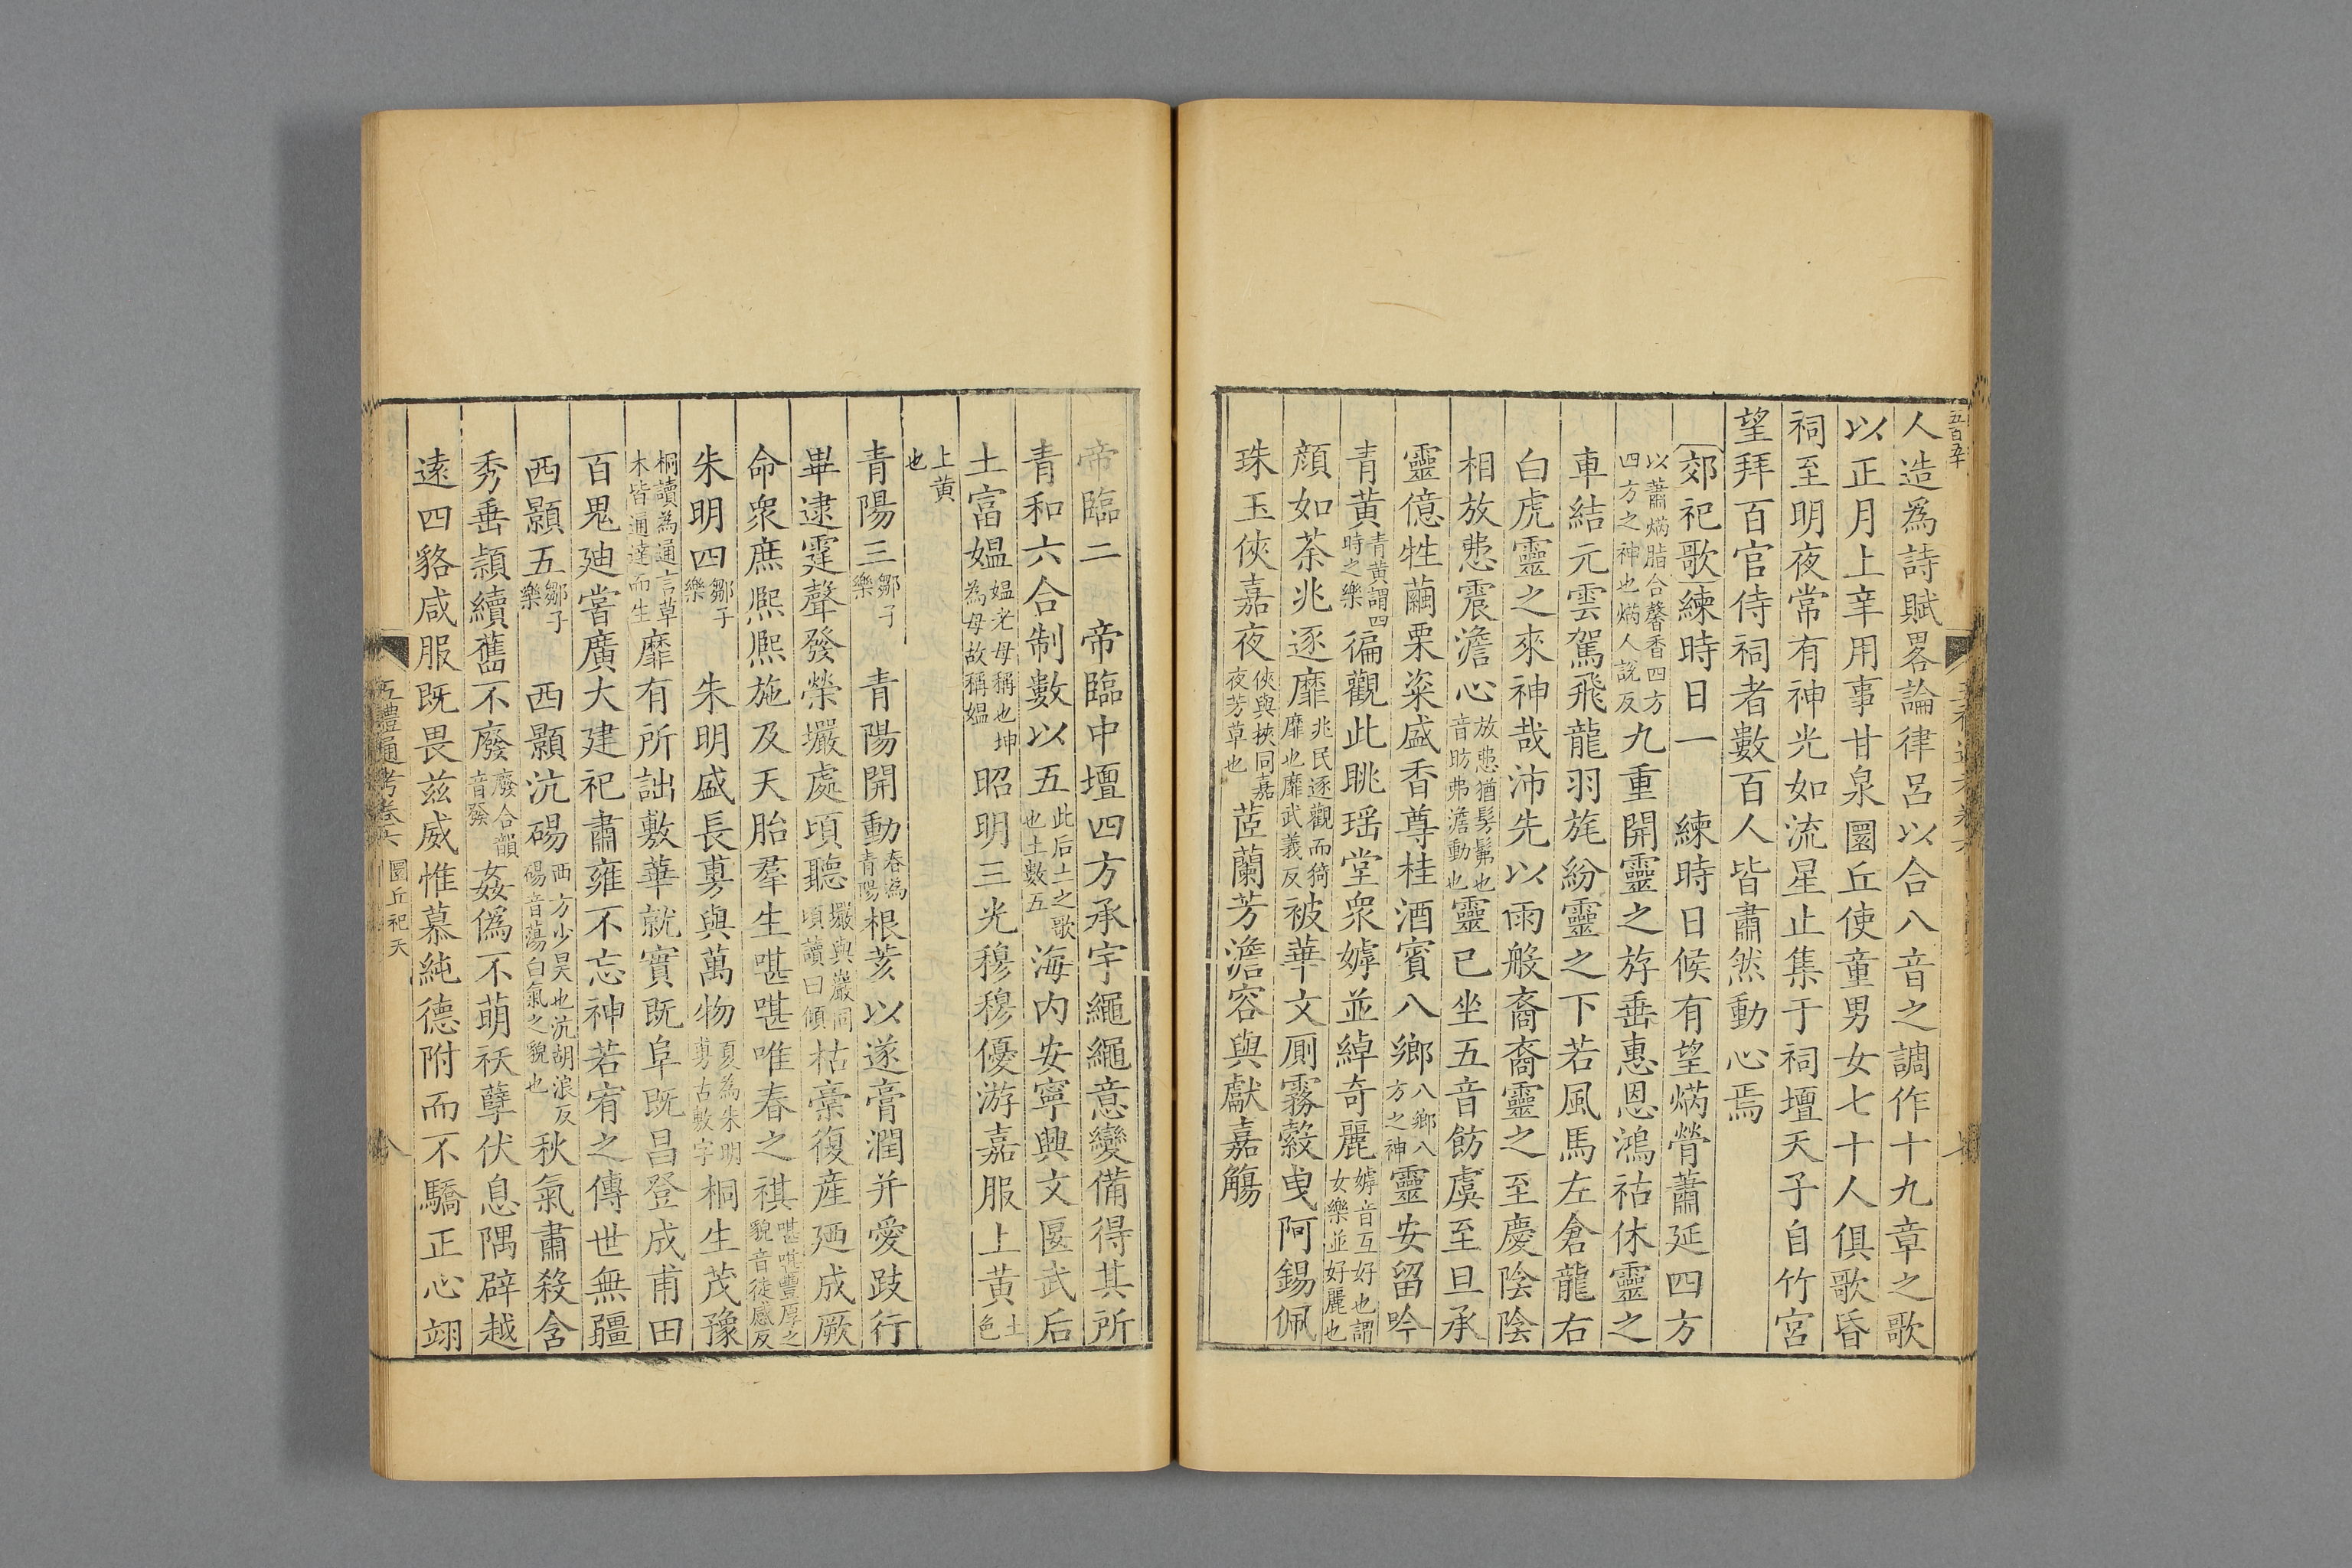 五百五十
人造爲詩賦畧論律呂以合八音之調作十九章之歌
以正月上辛用事甘泉圜丘使童男女七十人俱歌昏
祠至明夜常有神光如流星止集于祠壇天子自竹宮
望拜百官侍祠者數百人皆肅然動心焉
郊祀歌練時日一 練時日候有望焫膋蕭延四方
以蕭焫脂合馨香四方
四方之神也焫人說反
九重開靈之斿垂惠恩鴻祜休靈之
車結元雲駕飛龍羽旄紛靈之下若風馬左倉龍右
白虎靈之來神哉沛先以雨般裔裔靈之至慶陰陰
相放㤄震澹心
放㤄猶髣髴也
音昉弗澹動也
靈已坐五音飭虞至旦承
靈億牲繭栗粢盛香尊桂酒賓八鄉
八鄉八
方之神
靈安留吟
青黃
青黃謂四
時之樂
徧觀此眺瑶堂衆嫭並綽奇麗
嫭音互好也謂
女樂並好麗也
顔如荼兆逐靡
兆民逐觀而猗
靡也靡武義反
被華文厠霧縠曳阿錫佩
珠玉俠嘉夜
俠與挾同嘉
夜芳草也
茝蘭芳澹容與獻嘉觴
帝臨二 帝臨中壇四方承宇繩繩意變備得其所
青和六合制數以五
此后土之歌
也土數五
海内安寧興文匽武后
土富媪
媪老母稱也坤
為母故稱媪
昭明三光穆穆優游嘉服上黃
土
色
上黃
也
青陽三
鄒子
樂
青陽開動
春為
青陽
根荄以遂膏潤并愛跂行
畢逮霆聲發榮壧處頃聽
壧與巖同
頃讀曰傾
枯槀復産廼成厥
命衆庶熈熈施及夭胎羣生啿啿唯春之祺
啿啿豐厚之
貌音徒感反
朱明四
鄒子
樂
朱明盛長旉與萬物
夏為朱明
旉古敷字
桐生茂豫
桐讀為通言草
木皆通達而生
靡有所詘敷華就實既阜既昌登成甫田
百鬼廸嘗廣大建祀肅雍不忘神若宥之傳世無疆
西顥五
鄒子
樂
西顥沆碭
西方少昊也沆胡浪反
碭音蕩白氣之貌也
秋氣肅殺含
秀垂頴續舊不廢
廢合韻
音發
姦僞不萌袄孽伏息隅辟越
逺四貉咸服既畏兹威惟慕純德附而不驕正心翊
五禮通考卷六 圜丘祀天